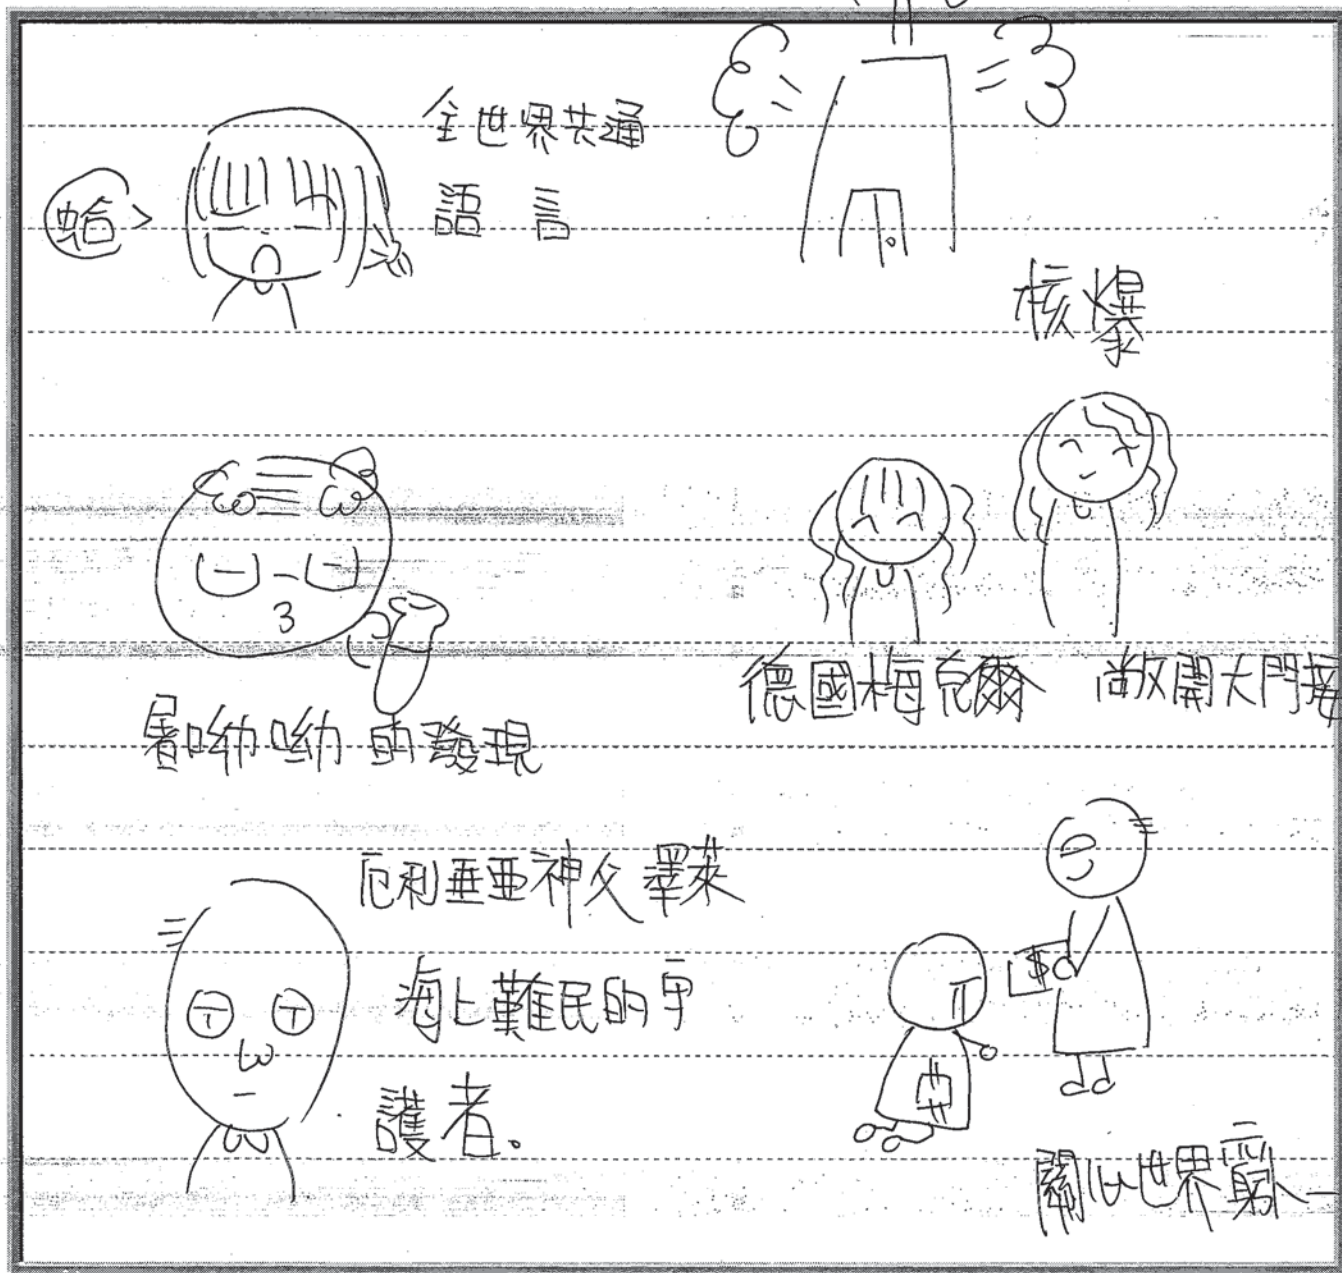 全世界共通
語言
蛤
核爆
屠呦呦的發現
德國梅克爾 敞開大門接
厄利垂亞神父澤萊
海上難民的守
護者。
$
關心世界窮人